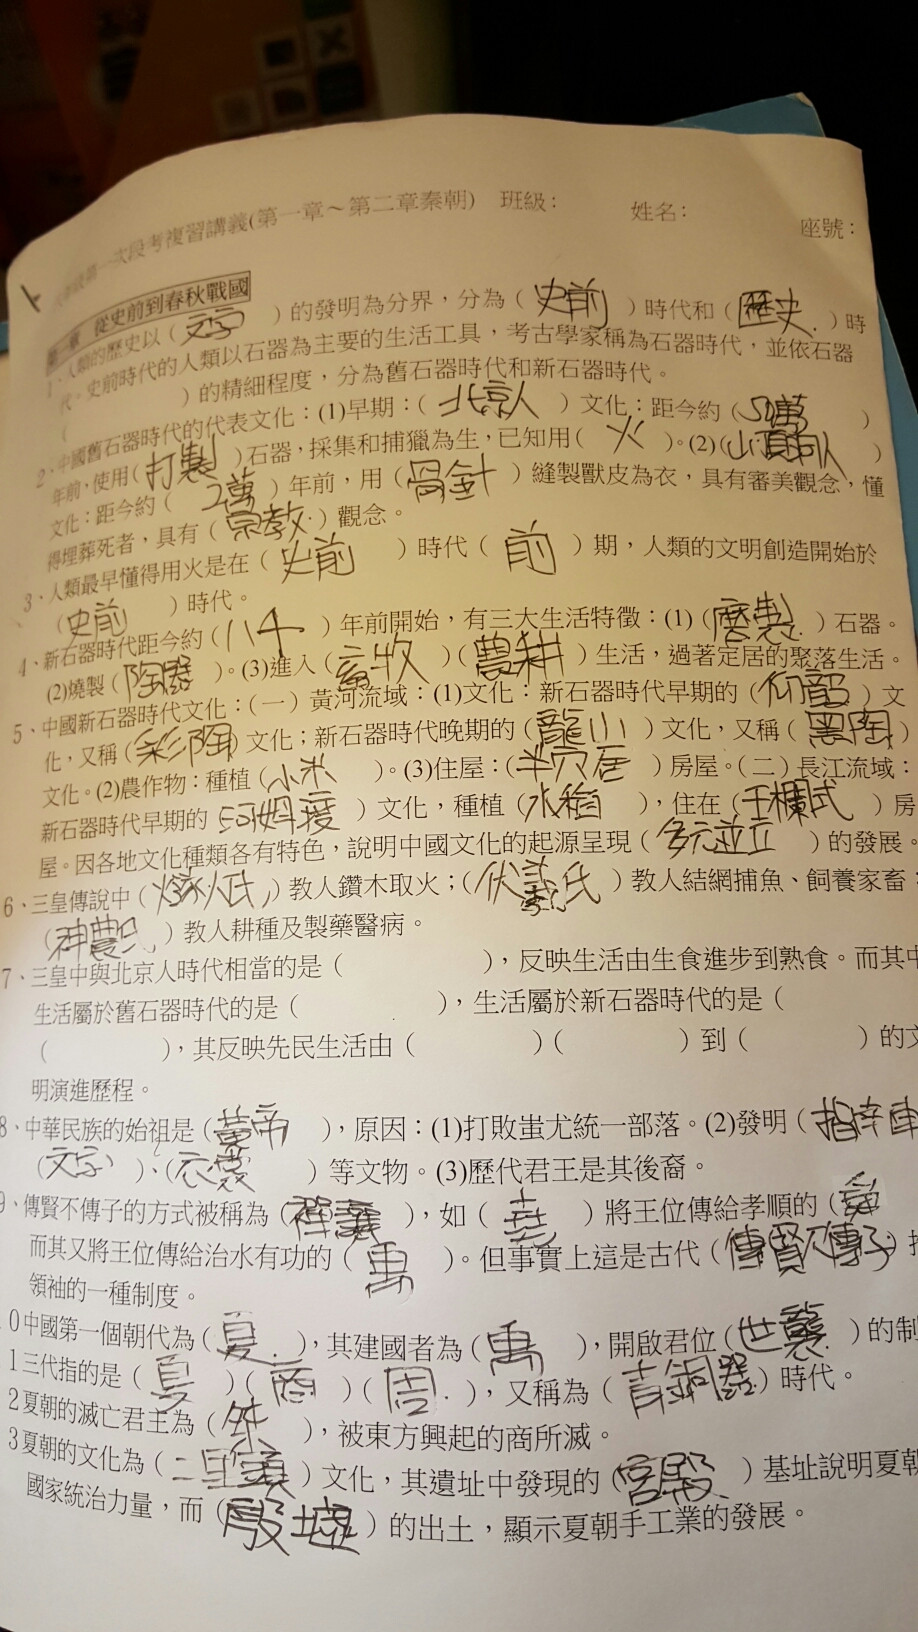 年級第一次段考複習講義(第一章～第二章秦朝) 班級： 姓名： 座號：
第一章 從史前到春秋戰國
1、人類的歷史以(文字)的發明為分界，分為(史前)時代和(歷史)時
代。史前時代的人類以石器為主要的生活工具，考古學家稱為石器時代，並依石器
( )的精細程度，分為舊石器時代和新石器時代。
2、中國舊石器時代的代表文化：(1)早期：(北京人)文化：距今約(50萬)
年前，使用(打製)石器，採集和捕獵為生，已知用(火)。(2)(山頂洞人)
文化：距今約(2萬)年前，用(骨針)縫製獸皮為衣，具有審美觀念，懂
得埋葬死者，具有(宗教)觀念。
3、人類最早懂得用火是在(史前)時代(前)期，人類的文明創造開始於
(史前)時代。
4、新石器時代距今約(八千)年前開始，有三大生活特徵：(1)(磨製)石器。
(2)燒製(陶器)。(3)進入(畜牧)(農耕)生活，過著定居的聚落生活。
5、中國新石器時代文化：(一)黃河流域：(1)文化：新石器時代早期的(仰韶)文
化，又稱(彩陶)文化；新石器時代晚期的(龍山)文化，又稱(黑陶)
文化。(2)農作物：種植(小米)。(3)住屋：(半穴居)房屋。(二)長江流域：
新石器時代早期的(河姆渡)文化，種植(水稻)，住在(干欄式)房
屋。因各地文化種類各有特色，說明中國文化的起源呈現(多元並立)的發展。
6、三皇傳說中(燧人氏)教人鑽木取火；(伏羲氏)教人結網捕魚、飼養家畜；
(神農氏)教人耕種及製藥醫病。
7、三皇中與北京人時代相當的是( )，反映生活由生食進步到熟食。而其中
生活屬於舊石器時代的是( )，生活屬於新石器時代的是(
( )，其反映先民生活由( )( )到( )的文
明演進歷程。
8、中華民族的始祖是(黃帝)，原因：(1)打敗蚩尤統一部落。(2)發明(指南車
(文字)、(衣裳)等文物。(3)歷代君王是其後裔。
9、傳賢不傳子的方式被稱為(禪讓)，如(堯)將王位傳給孝順的(舜
而其又將王位傳給治水有功的(禹)。但事實上這是古代(傳賢不傳子)推
領袖的一種制度。
0中國第一個朝代為(夏)，其建國者為(禹)，開啟君位(世襲)的制
1三代指的是(夏)(商)(周)，又稱為(青銅器)時代。
2夏朝的滅亡君主為(桀)，被東方興起的商所滅。
3夏朝的文化為(二里頭)文化，其遺址中發現的(宮殿)基址說明夏朝
國家統治力量，而(殷墟)的出土，顯示夏朝手工業的發展。